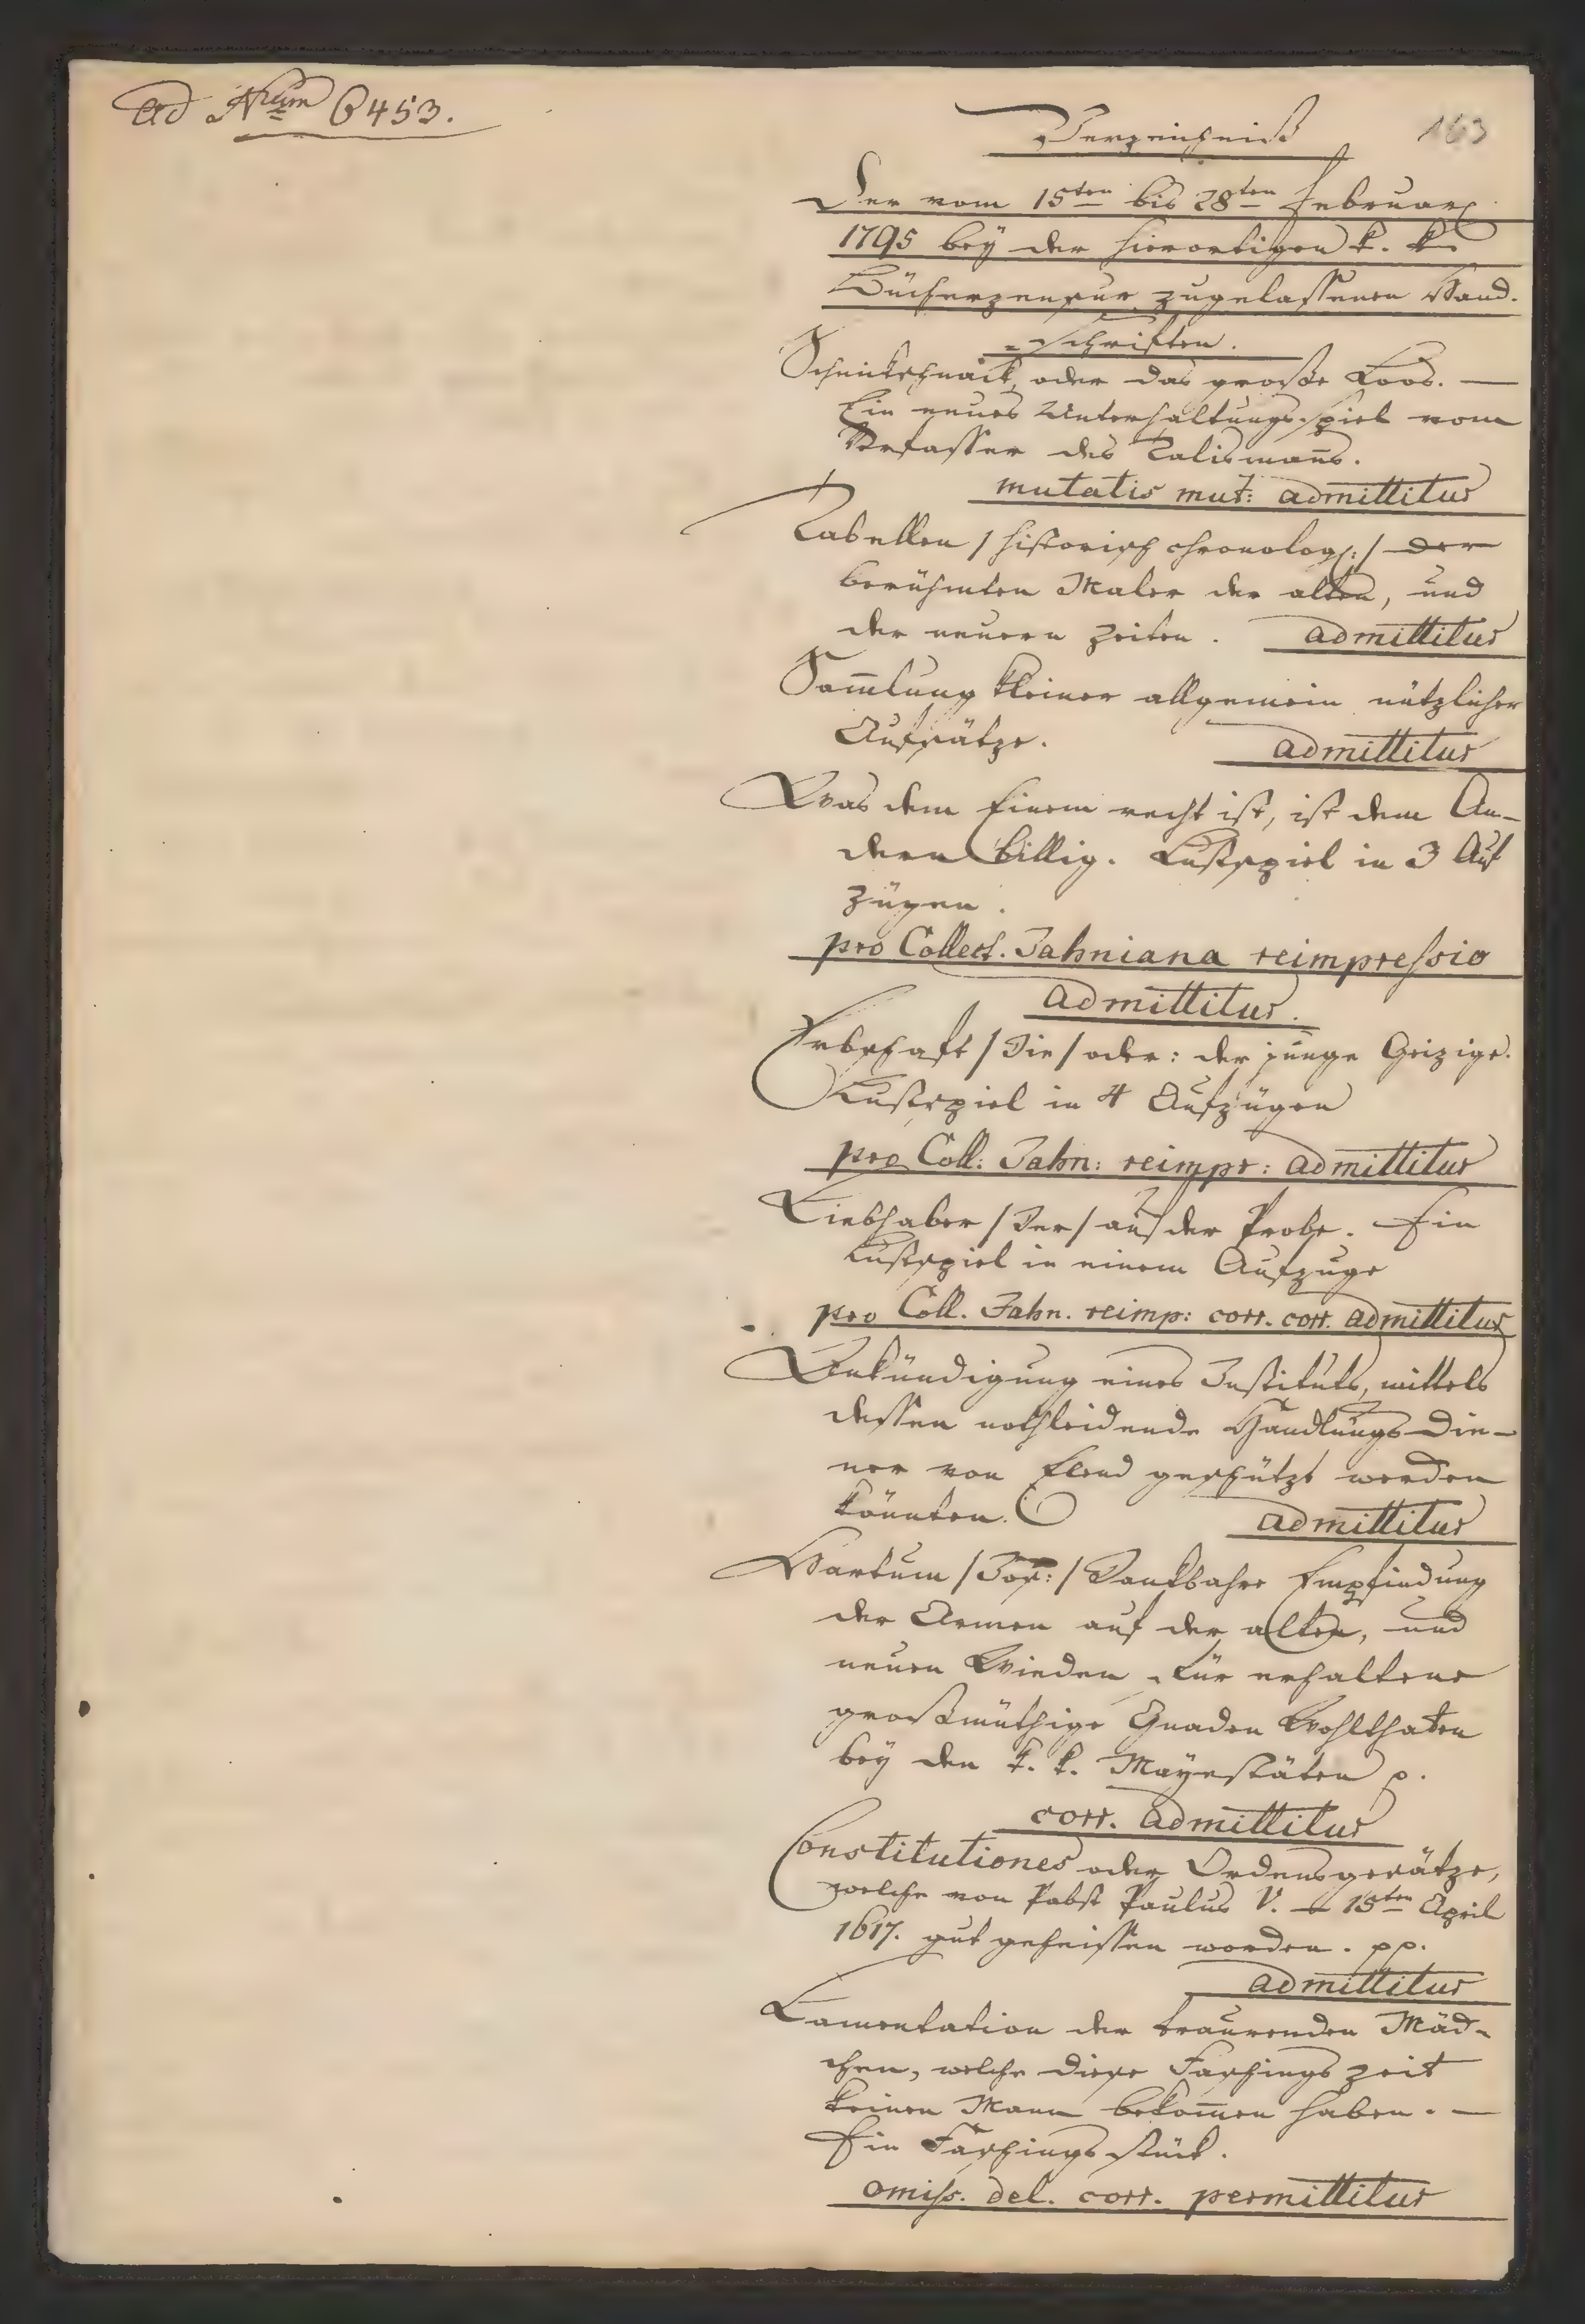 ad Num 6453.
163
Verzeichniß
Der vom 15ten bis 28ten Februar
1795 bey der hierortigen k. k.
Bücherzensur zugelassenen Hand-
-schriften.
oder das große Loos. —
Ein neues Unterhaltungsspiel vom
Verfasser des Talismans.
mutatis mut: admittitur
Tabellen /historisch chronolog:/ der
berühmten Maler der alten, und
der neuern Zeiten. admittitur
Sam̄lung kleiner allgemein nützlicher
Aufsätze. admittitur
Was dem Einem recht ist, ist dem An-
dern billig. Lustspiel in 3 Auf
zügen.
pro Collect. Jahniana reimpressio
admittitur.
Erbschaft /Die/ oder: der junge Geizige.
Lustspiel in 4 Aufzügen
pro Coll: Jahn: reimpr: admittitur
Liebhaber /Der/ auf der Probe. Ein
Lustspiel in einem Aufzuge
pro Coll. Jahn. reimp: corr. corr. admittitur
Ankündigung eines Instituts, mittels
dessen nothleidende Handlungs Die-
ner von Elend geschützt werden
könnten. admittitur
/Jos:/ Dankbahre Empfindung
der Armen auf der alten, und
neuen Wieden für erhaltene
großmüthige Gnaden Wohlthaten
bey den k. k. Mayestäten p.
corr. admittitur
Constitutiones oder Ordensgesätze,
welche von Pabst Paulus V. 15ten April
1617. gut geheissen worden. pp.
admittitur
Lamentation der traurenden Mäd-
chen, welche diese Faschings zeit
keinen Mann bekom̄en haben. —
Ein Faschings stück.
omiss. del. corr. permittitur